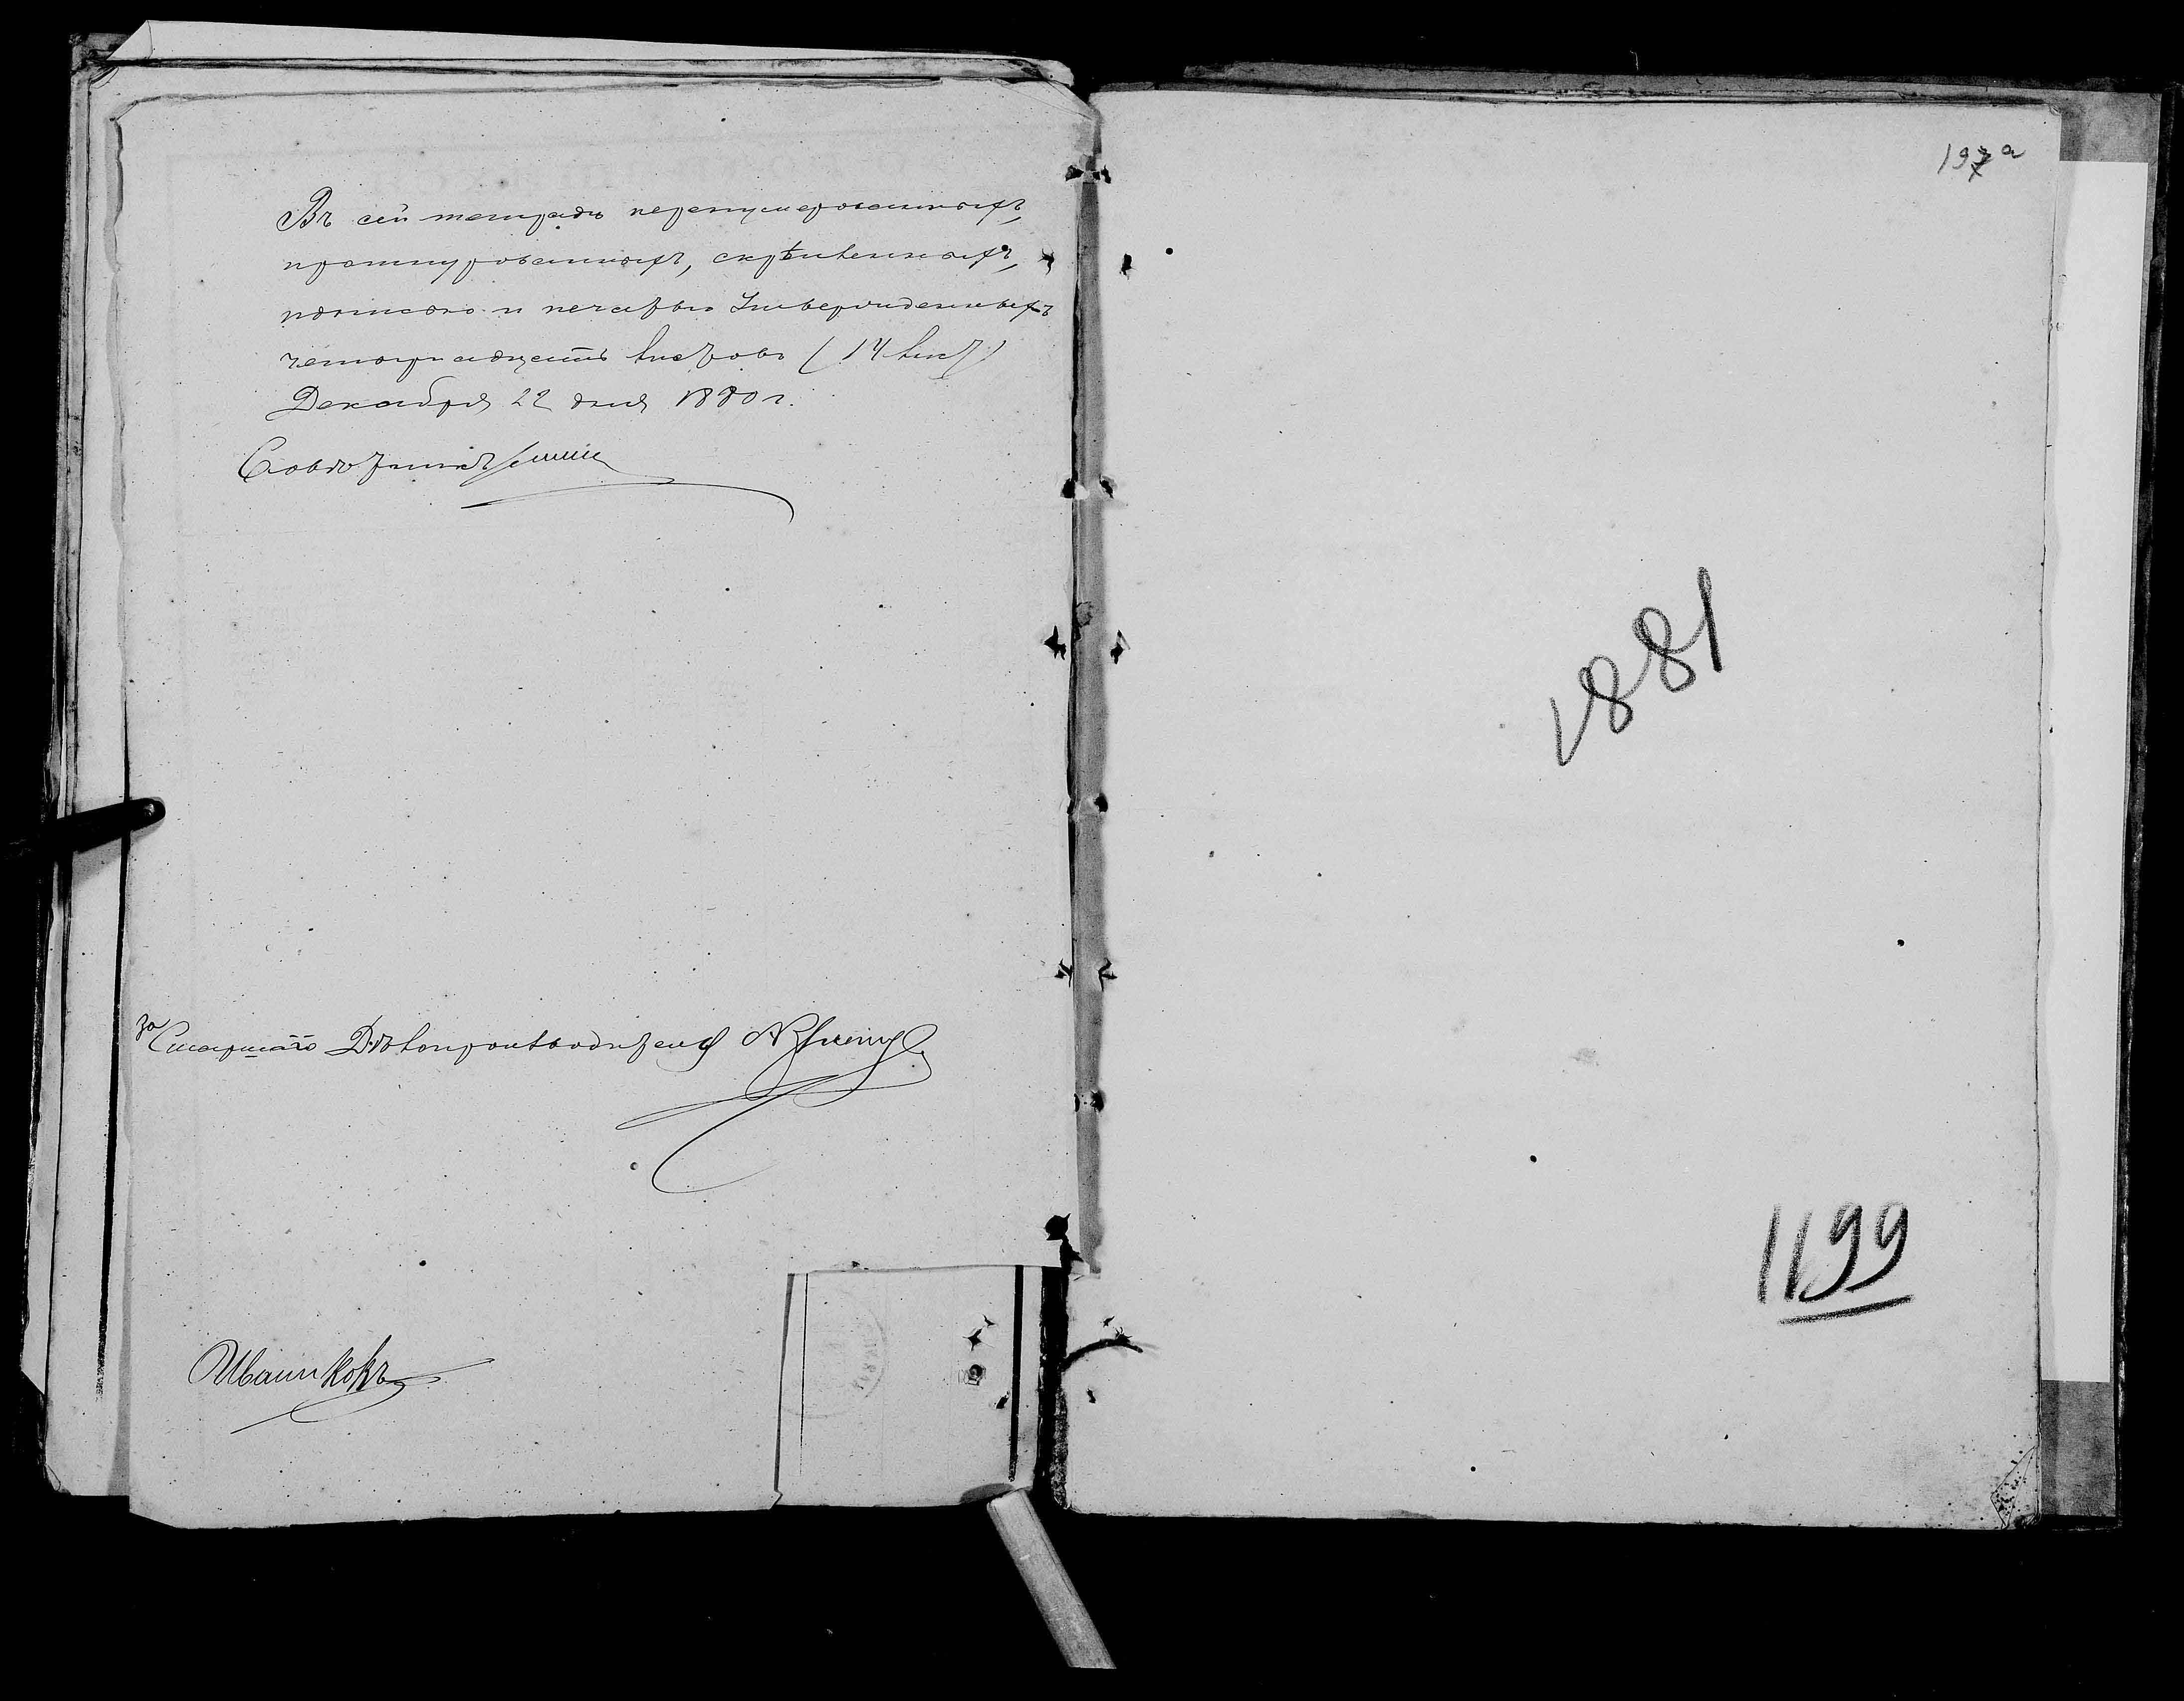 Въ сей тетради перенумерованныхъ,
прошнурованныхъ, скрѣпленныхъ,
подписью и печатью утвержденныхъ
четырнадцать листовъ (14 лист)
Декабря 22 дня 1880 г.
Совѣтникъ
за Старшаго Дѣлопроизводителя
197 а
1881
1199